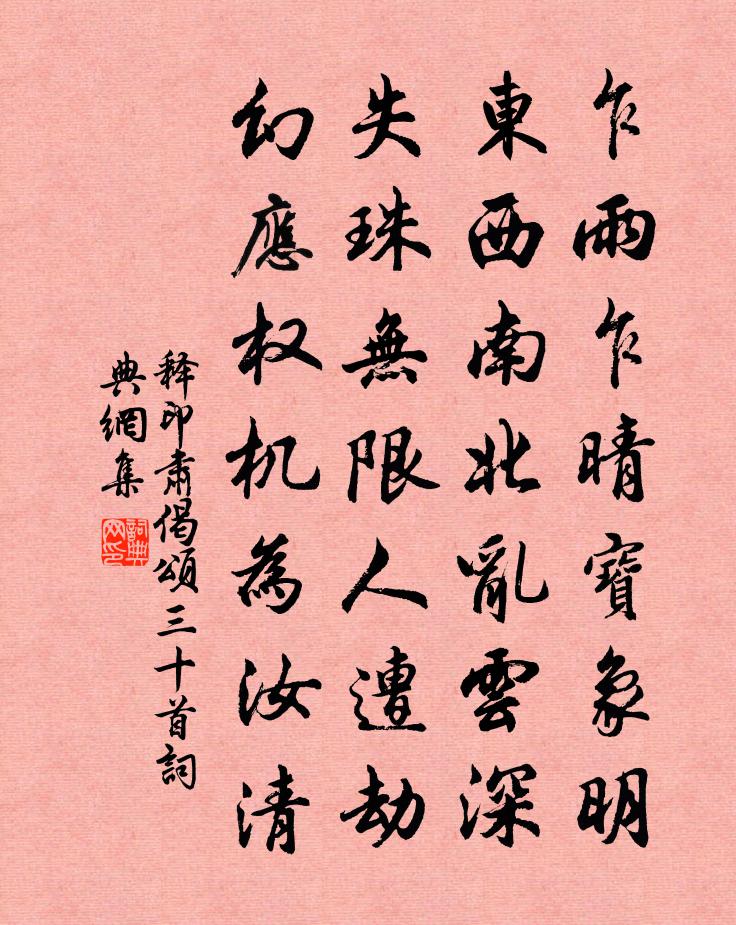 乍雨乍晴寶象明
東西南北亂雲深
失珠無限人遭劫
幻應权机為汝清
释印肅偈頌三十首詞
典網集
詞典
网印